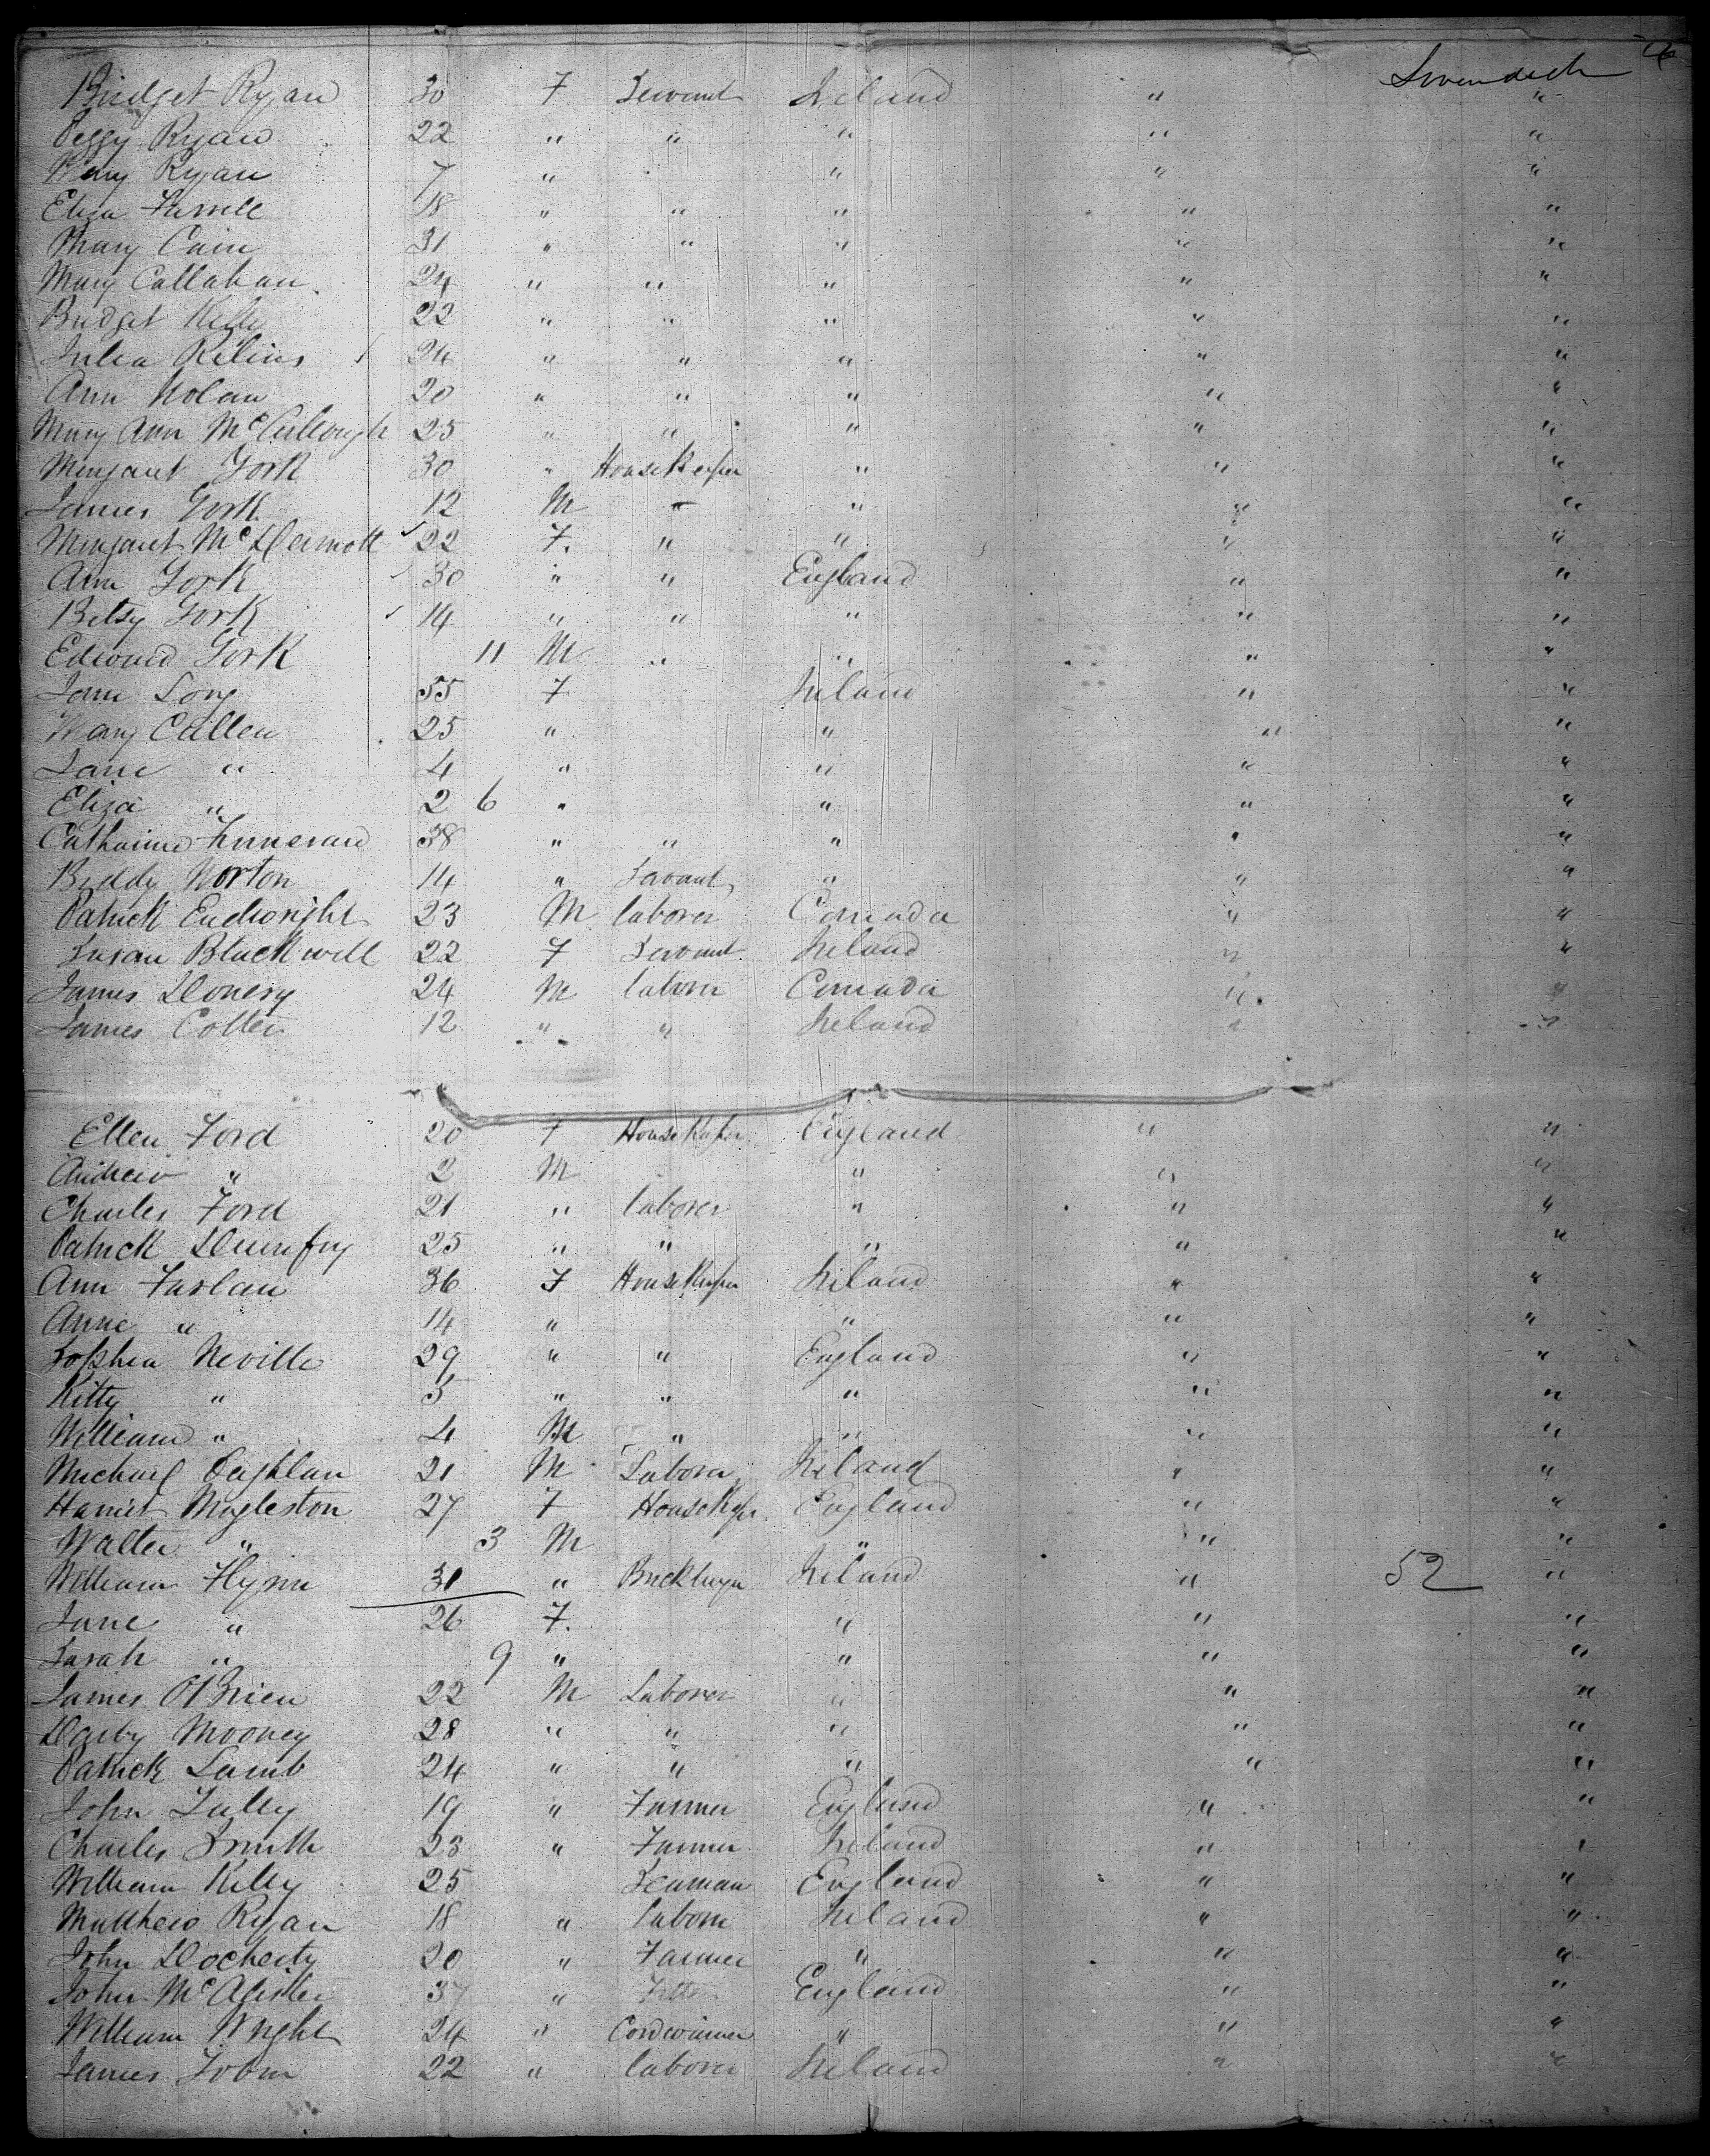 Bridget Ryan 30 F Servant Ireland " "
Peggy Ryan 22 " " " " "
Mary Ryan 7 " " " "
Eliza Farrell 18 " " " " "
Mary Cain 31 " " " " "
Mary Callahan 24 " " " " "
Bridget Kelly 22 " " " " "
Julia 24 " " " " "
Ann Nolan 20 " " " " "
Mary Ann McCullough 25 " " " " "
Margaret York 30 " HouseKeeper " " "
James York 12 M - " " "
Margaret McDermott 22 F. " " " "
Ann York 30 " " England " "
Betsy York 14 " " " " "
Edward York 11 M " " " "
Jane Long 55 F Ireland " "
Mary Cullen 25 " " " "
Jane " 4 " " " "
Eliza " 2 6 " " " "
Catharine 38 " " " " "
Biddy Norton 14 " Servant " " "
Patrick Enduright 23 M laborer Canada " "
Susan Blackwell 22 F Servant Ireland " "
James 24 M laborer Canada " "
James Cotter 12 " " Ireland " "
Ellen Ford 20 F HouseKeeper England " "
Andrew " 2 M " " "
Charles Ford 21 " laborer " " "
Patrick Dumfry 25 " " " " "
Ann Farlan 36 F HouseKeeper Ireland " "
Anne " 14 " " " "
Sophia Neville 29 " " England " "
Kitty " 5 " " " " "
William " 4 M " " " "
Michael Coghlan 21 M Laborer Ireland " "
Harriet Mugleston 27 F HouseKeper England " "
Walter " 3 M " " "
William Flynn 31 " Bricklayer Ireland " 52 "
Jane " 26 F. " " "
Sarah " 9 " " " "
James O'Brien 22 M Laborer " " "
Darby Mooney 28 " " " " "
Patrick Lamb 24 " " " " "
John Tully 19 " Farmer England " "
Charles Smith 23 " Farmer Ireland " "
William Kelly 25 Seaman England " "
Matthew Ryan 18 " laborer Ireland " "
John Docherty 20 " Farmer " " "
John McAlister 37 " England " "
William Wright 24 " Cordwainer " " "
James Tobin 22 " laborer Ireland " "